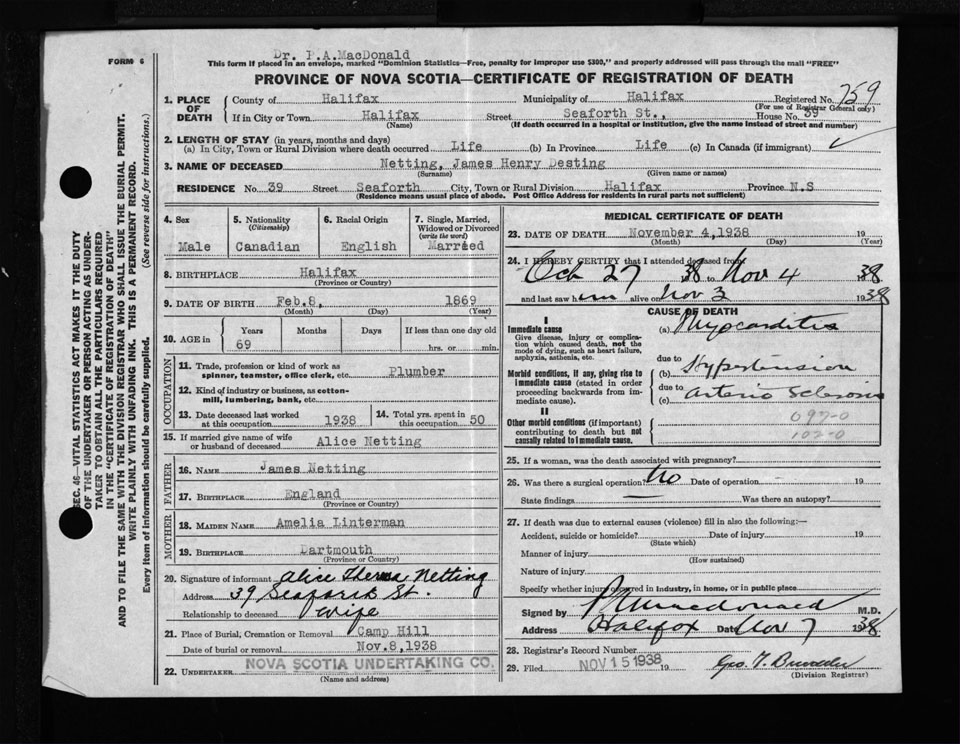 Dr. P.A.MacDonald
FORM 6
This form if placed in an envelope, marked "Dominion Statistics—Free, penalty for improper use $300," and properly addressed will pass through the mail "FREE"
PROVINCE OF NOVA SCOTIA—CERTIFICATE OF REGISTRATION OF DEATH
SEC. 46—VITAL STATISTICS ACT MAKES IT THE DUTY
OF THE UNDERTAKER OR PERSON ACTING AS UNDER-
TAKER TO OBTAIN ALL THE PARTICULARS REQUIRED
IN THE "CERTIFICATE OF REGISTRATION OF DEATH"
AND TO FILE THE SAME WITH THE DIVISION REGISTRAR WHO SHALL ISSUE THE BURIAL PERMIT.
WRITE PLAINLY WITH UNFADING INK. THIS IS A PERMANENT RECORD.
Every item of information should be carefully supplied. (See reverse side for instructions.)
1. PLACE OF DEATH County of Halifax Municipality of Halifax Registered No. 759
(For use of Registrar General only)
If in City or Town Halifax Street Seaforth St., House No. 39
(Name) (If death occurred in a hospital or institution, give the name instead of street and number)
2. LENGTH OF STAY (in years, months and days)
(a) In City, Town or Rural Division where death occurred Life (b) In Province Life (c) In Canada (if immigrant)
3. NAME OF DECEASED Netting, James Henry Desting
(Surname) (Given name or names)
RESIDENCE No. 39 Street Seaforth City, Town or Rural Division Halifax Province N.S
(Residence means usual place of abode. Post Office Address for residents in rural parts not sufficient)
4. Sex 5. Nationality (Citizenship) 6. Racial Origin 7. Single, Married, Widowed or Divorced (write the word)
Male Canadian English Married
8. BIRTHPLACE Halifax
(Province or Country)
9. DATE OF BIRTH Feb.8, 1869
(Month) (Day) (Year)
10. AGE in Years Months Days If less than one day old
69 hrs. or min.
OCCUPATION
11. Trade, profession or kind of work as spinner, teamster, office clerk, etc. Plumber
12. Kind of industry or business, as cotton-mill, lumbering, bank, etc.
13. Date deceased last worked at this occupation 1938 14. Total yrs. spent in this occupation 50
15. If married give name of wife or husband of deceased Alice Netting
FATHER
16. NAME James Netting
17. BIRTHPLACE England
(Province or Country)
MOTHER
18. MAIDEN NAME Amelia Linterman
19. BIRTHPLACE Dartmouth
(Province or Country)
20. Signature of informant Alice Therma Netting
Address 39 Seaforth St.
Relationship to deceased wife
21. Place of Burial, Cremation or Removal Camp Hill
Date of burial or removal Nov.8,1938
22. UNDERTAKER NOVA SCOTIA UNDERTAKING CO.
(Name and address)
MEDICAL CERTIFICATE OF DEATH
23. DATE OF DEATH November 4,1938 19
(Month) (Day) (Year)
24. I HEREBY CERTIFY that I attended deceased from
Oct 27 1938 to Nov 4 1938
and last saw him alive on Nov 3 1938
CAUSE OF DEATH
I
Immediate cause
Give disease, injury or complication which caused death, not the mode of dying, such as heart failure, asphyxia, asthenia, etc.
(a) Myocarditis
due to
Morbid conditions, if any, giving rise to immediate cause (stated in order proceeding backwards from immediate cause).
(b) Hypertension
due to
(c) Arterio Sclerosis
II
Other morbid conditions (if important) contributing to death but not causally related to immediate cause.
097-0
102-0
25. If a woman, was the death associated with pregnancy?
26. Was there a surgical operation? No Date of operation 19
State findings Was there an autopsy?
27. If death was due to external causes (violence) fill in also the following:—
Accident, suicide or homicide? Date of injury 19
(State which)
Manner of injury
(How sustained)
Nature of injury
Specify whether injury occurred in industry, in home, or in public place
Signed by P A Macdonald M.D.
Address Halifax Date Nov 7 1938
28. Registrar's Record Number
29. Filed NOV 15 1938 19
Geo. T.
(Division Registrar)